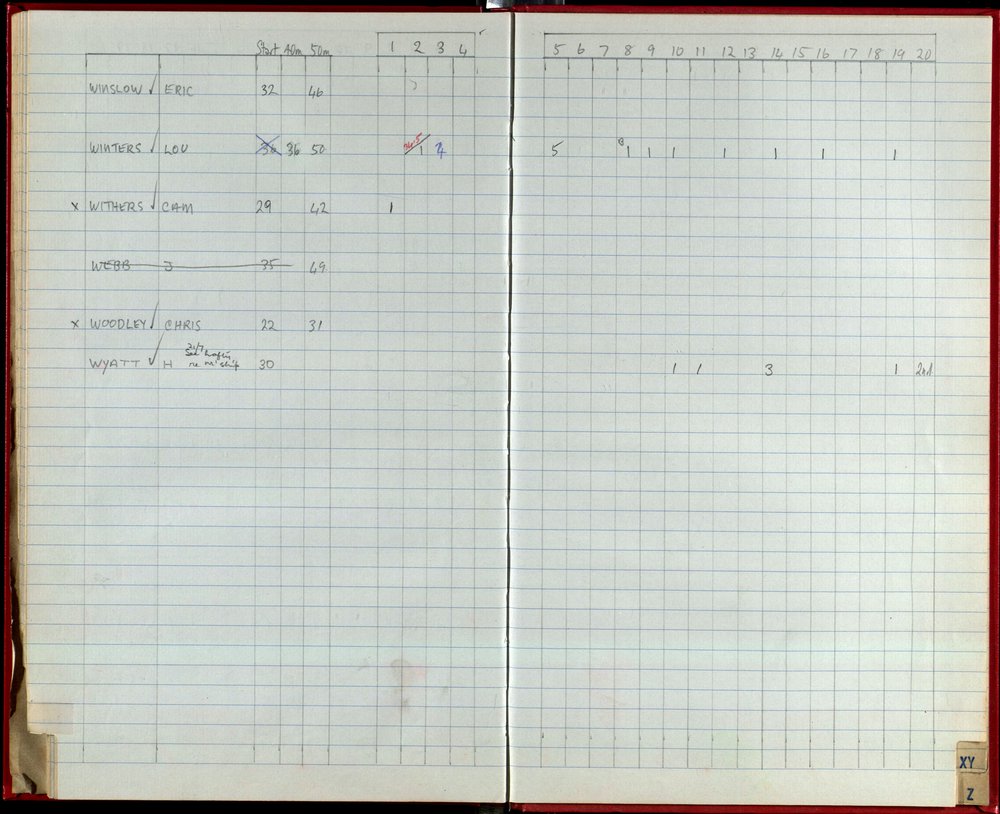 Start 40m 50m 1 2 3 4 5 6 7 8 9 10 11 12 13 14 15 16 17 18 19 20
WINSLOW ✓ ERIC 32 46
WINTERS ✓ LOU 34 36 50 34.5 1 4 5 1 1 1 1 1 1 1
x WITHERS ✓ CAM 29 42 1
WEBB J 35 49
x WOODLEY ✓ CHRIS 22 31
21/7
See
WYATT ✓ H re m'ship 30 1 1 3 1 2nd
XY
Z